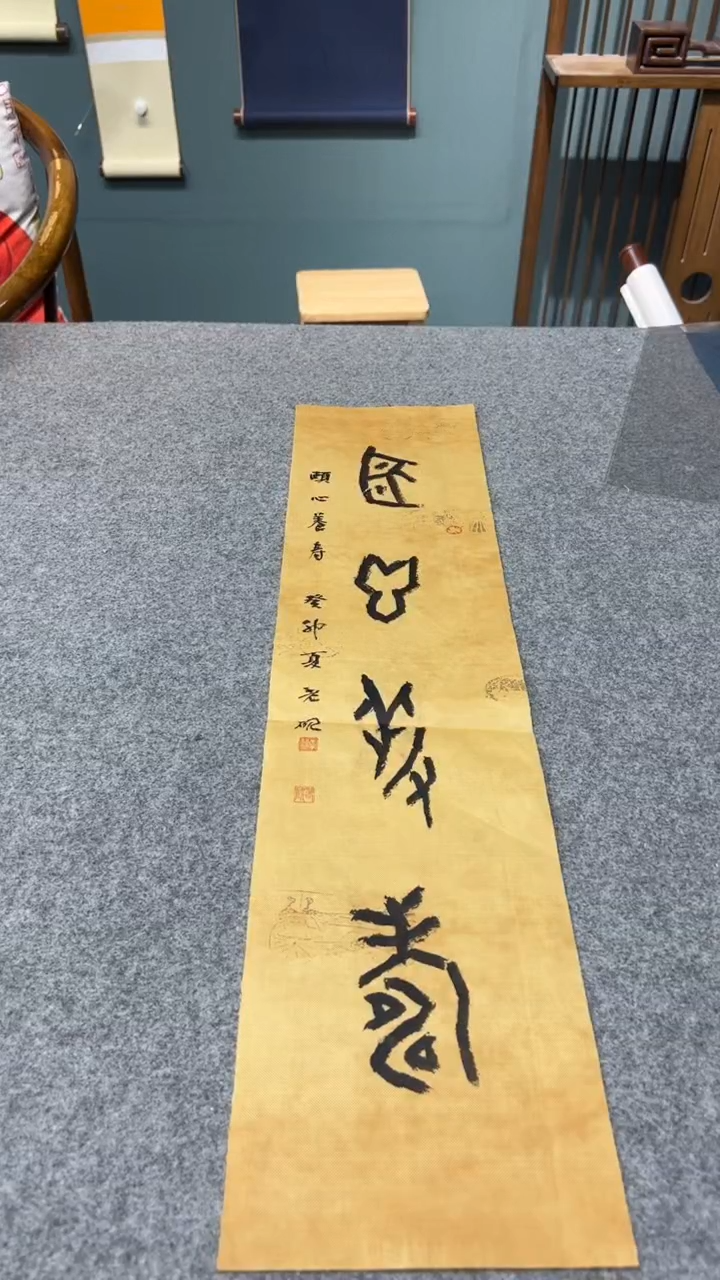 頤心養壽
頤心養寿 癸卯夏 老硯